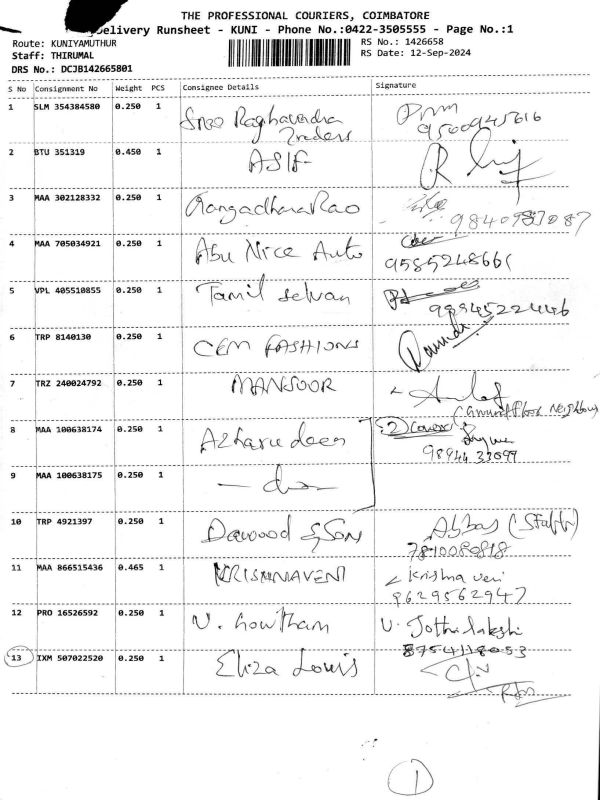 THE PROFESSIONAL COURIERS, COIMBATORE
Delivery Runsheet - KUNI - Phone No.:0422-3505555 - Page No.:1
Route: KUNIYAMUTHUR RS No.: 1426658
Staff: THIRUMAL RS Date: 12-Sep-2024
DRS No.: DCJB142665801
S No Consignment No Weight PCS Consignee Details Signature
1 SLM 354384580 0.250 1 Sree Raghavendra
Traders 9500945616
2 BTU 351319 0.450 1 ASIF
3 MAA 302128332 0.250 1 RangadhanaRao
9840983087
4 MAA 705034921 0.250 1 Abu Nice Auto
9585248661
5 VPL 405510855 0.250 1 Tamil selvan
98845222446
6 TRP 8140130 0.250 1 CEM FASHIONS
7 TRZ 240024792 0.250 1 MANSOOR
(Ground Floor Neighbour)
8 MAA 100638174 0.250 1 Azharudeen 2 Cover
98944 33099
9 MAA 100638175 0.250 1 - do -
10 TRP 4921397 0.250 1 Dawood & Son Abbas (Staff)
7810080818
11 MAA 866515436 0.465 1 KRISHNAVENI Krishna veni
9629562947
12 PRO 16526592 0.250 1 V. Gowtham V. Jothilakshi
8754118053
13 IXM 507022520 0.250 1 Eliza Louis
1